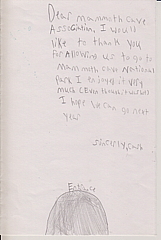 Dear mammoth cave
Association, I would
like to thank you
for Allowing us to go to
Mammoth cave National
Park I enjoyed it very
much
I hope we can go next
year
sincerly,
Entrance